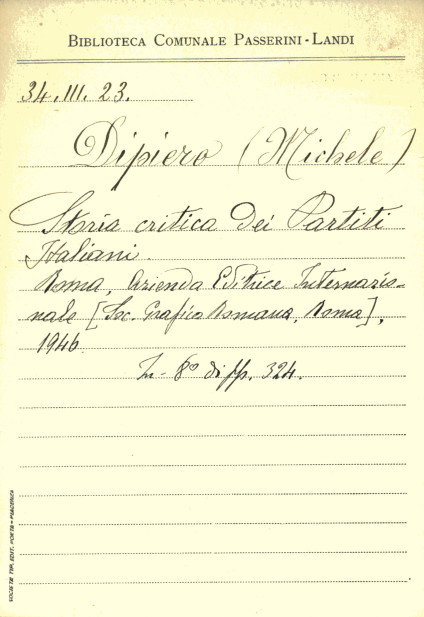 BIBLIOTECA COMUNALE PASSERINI-LANDI
34. III. 23.
Dipiero (Michele)
Storia critica dei Partiti
Italiani.
Roma, Azienda Editrice Internazio-
nale [Soc. Grafica Romana, Roma],
1946
In-8° di pp. 324.
SOCIETÀ TIP. EDIT. PORTA - PIACENZA